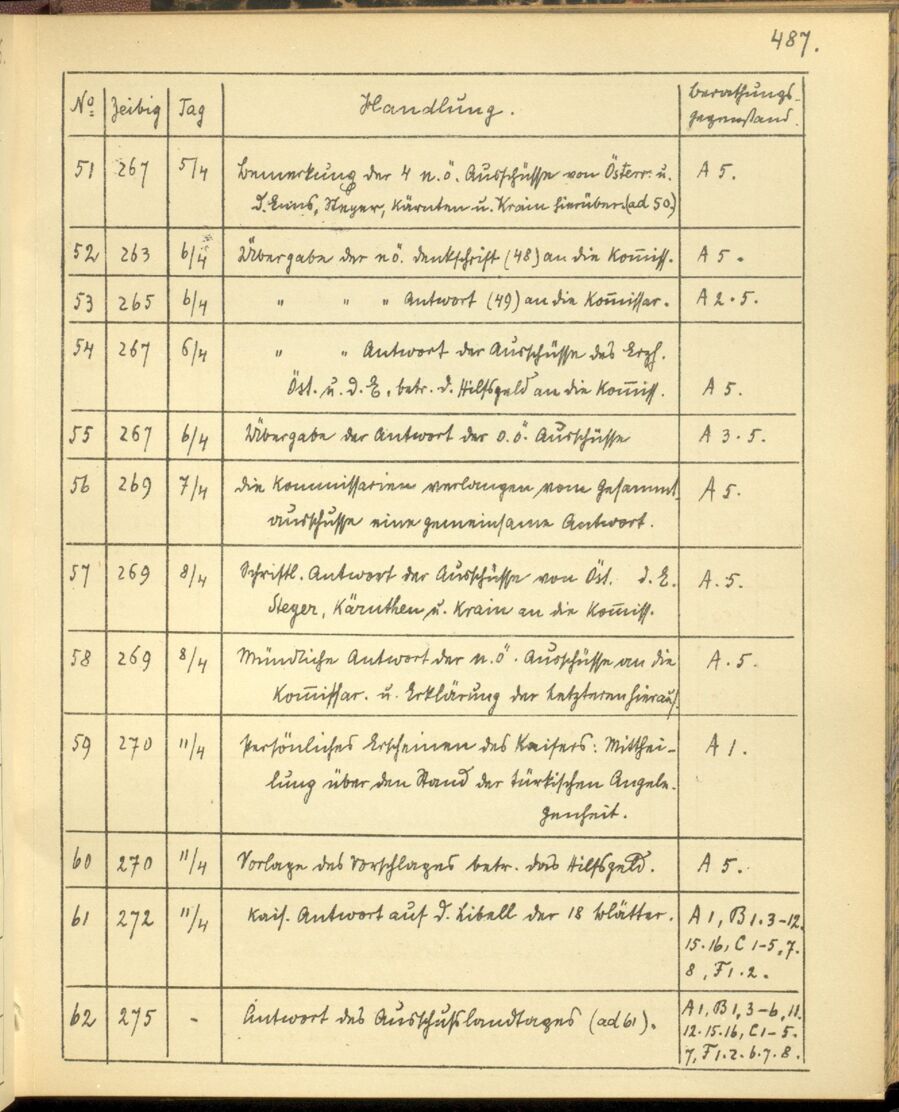 487.
No Zeibig Tag Handlung. Berathungs-
gegenstand.
51 267 5/4 Bemerkung der 4 n.ö. Ausschüsse von Österr. u. A 5.
d. Enns, Steyer, Kärnten u. Krain hierüber (ad 50.)
52 263 6/4 Übergabe der nö. Denkschrift (48) an die Kom̄iss. A 5.
53 265 6/4 " " " Antwort (49) an die Kom̄issar. A 2.5.
54 267 6/4 " " Antwort der Ausschüsse des Erzh.
Öst. u. d. E. betr. d. Hilfsgeld an die Kom̄iss. A 5.
55 267 6/4 Übergabe der Antwort der o.ö. Ausschüsse A 3.5.
56 269 7/4 Die Kommissarien verlangen vom Gesammt- A 5.
ausschusse eine gemeinsame Antwort.
57 269 8/4 Schriftl. Antwort der Ausschüsse von Öst. d. E. A.5.
Steyer, Kärnthen u. Krain an die Kom̄iss.
58 269 8/4 Mündliche Antwort der n.ö. Ausschüsse an die A.5.
Kom̄issar. u. Erklärung der Letzteren hierauf.
59 270 11/4 Persönliches Erscheinen des Kaisers: Mitthei- A 1.
lung über den Stand der türkischen Angele-
genheit.
60 270 11/4 Vorlage des Vorschlages betr. das Hilfsgeld. A 5.
61 272 11/4 Kais. Antwort auf d. Libell der 18 Blätter. A 1, B 1.3-12.
15.16, C 1-5,7.
8, F 1.2.
62 275 - Antwort des Ausschusslandtages (ad 61). A 1, B 1, 3-6, 11.
12.15.16, C 1-5.
7, F 1.2.6.7.8.